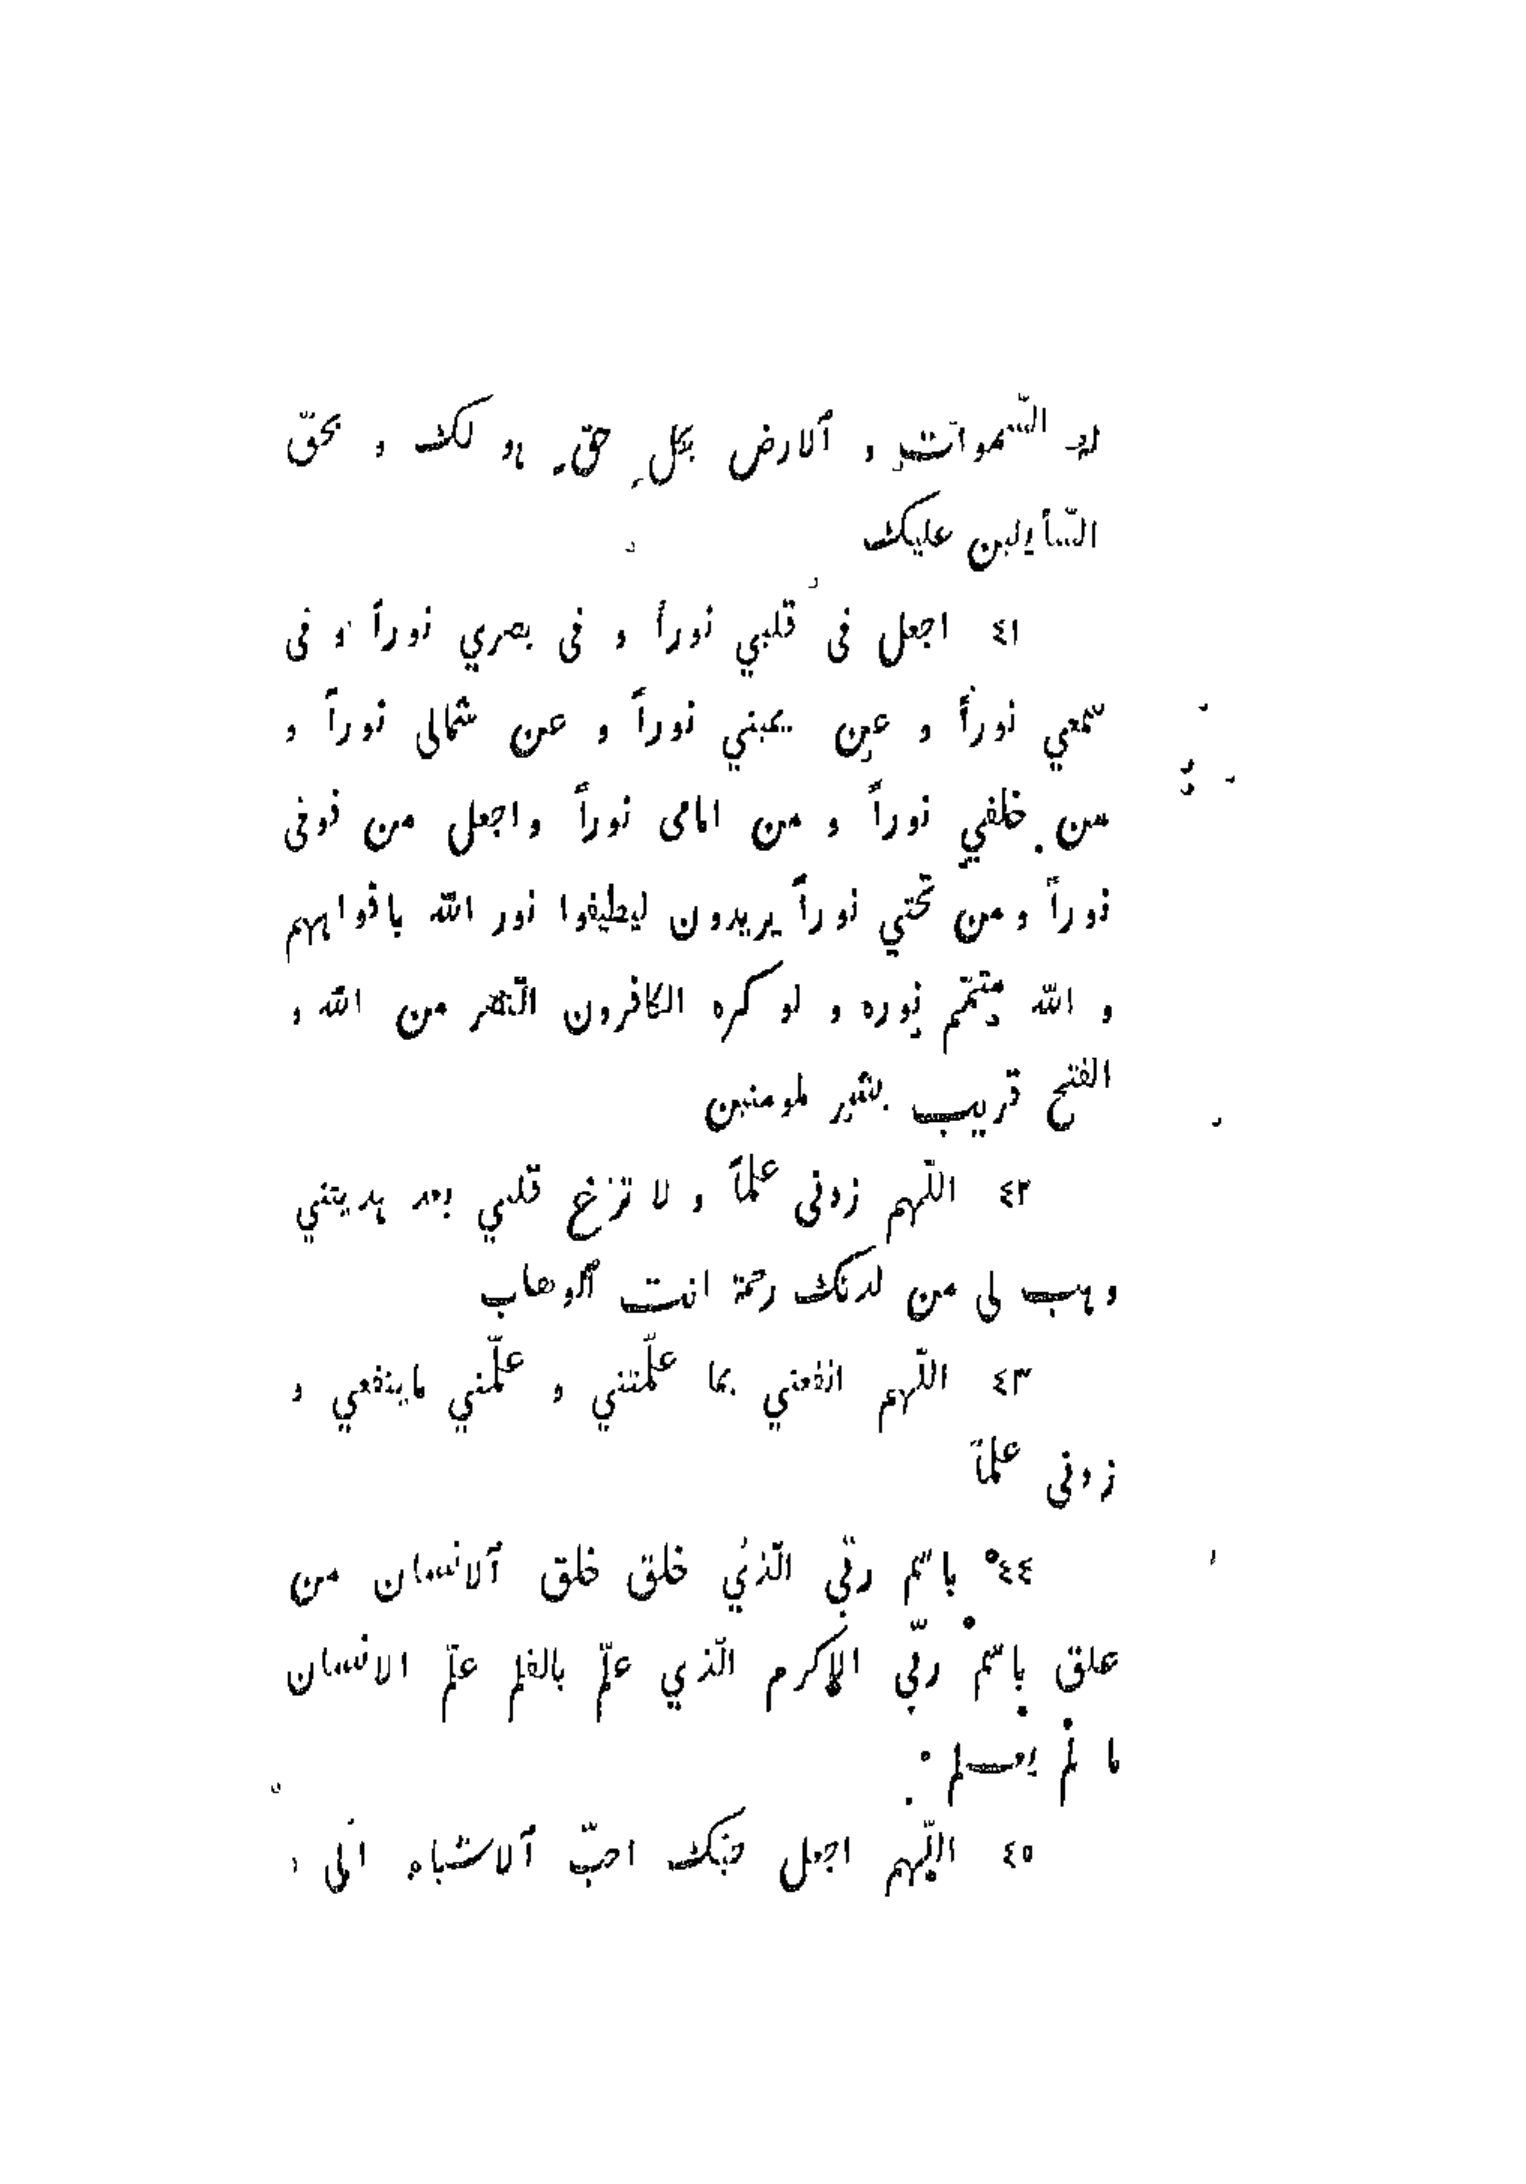 له السّموات و ٱلارض بكل حق هو لك و بحقّ
السّأيلين عليك
٤١ اجعل فى قلبي نوراً و فى بصري نوراً و فى
سمعي نوراً و عن يميني نوراً و عن شمالى نوراً و
من خلفي نوراً و من امامى نوراً واجعل من فوقى
نوراً و من تحتي نوراً يريدون ليطيفوا نور الله بافواههم
و الله متمّم نوره و لو كره الكافرون النّصر من الله و
الفتح قريب بشير لمومنين
٤٢ اللّهم زدنى علماً و لا تزغ قلبي بعد هديتني
وهب لى من لدنك رحمة انت ٱلوهاب
٤٣ اللّهم انفعني بما علّمتني و علّمني ماينفعي و
زدنى علماً
٤٤ باسم ربّي الّذي خلق خلق ٱلانسان من
علق باسم ربّي الاكرم الّذي علّم بالقلم علّم الانسان
ما لم يعلم
٤٥ اللّهم اجعل حبّك احبّ ٱلاشياء الى